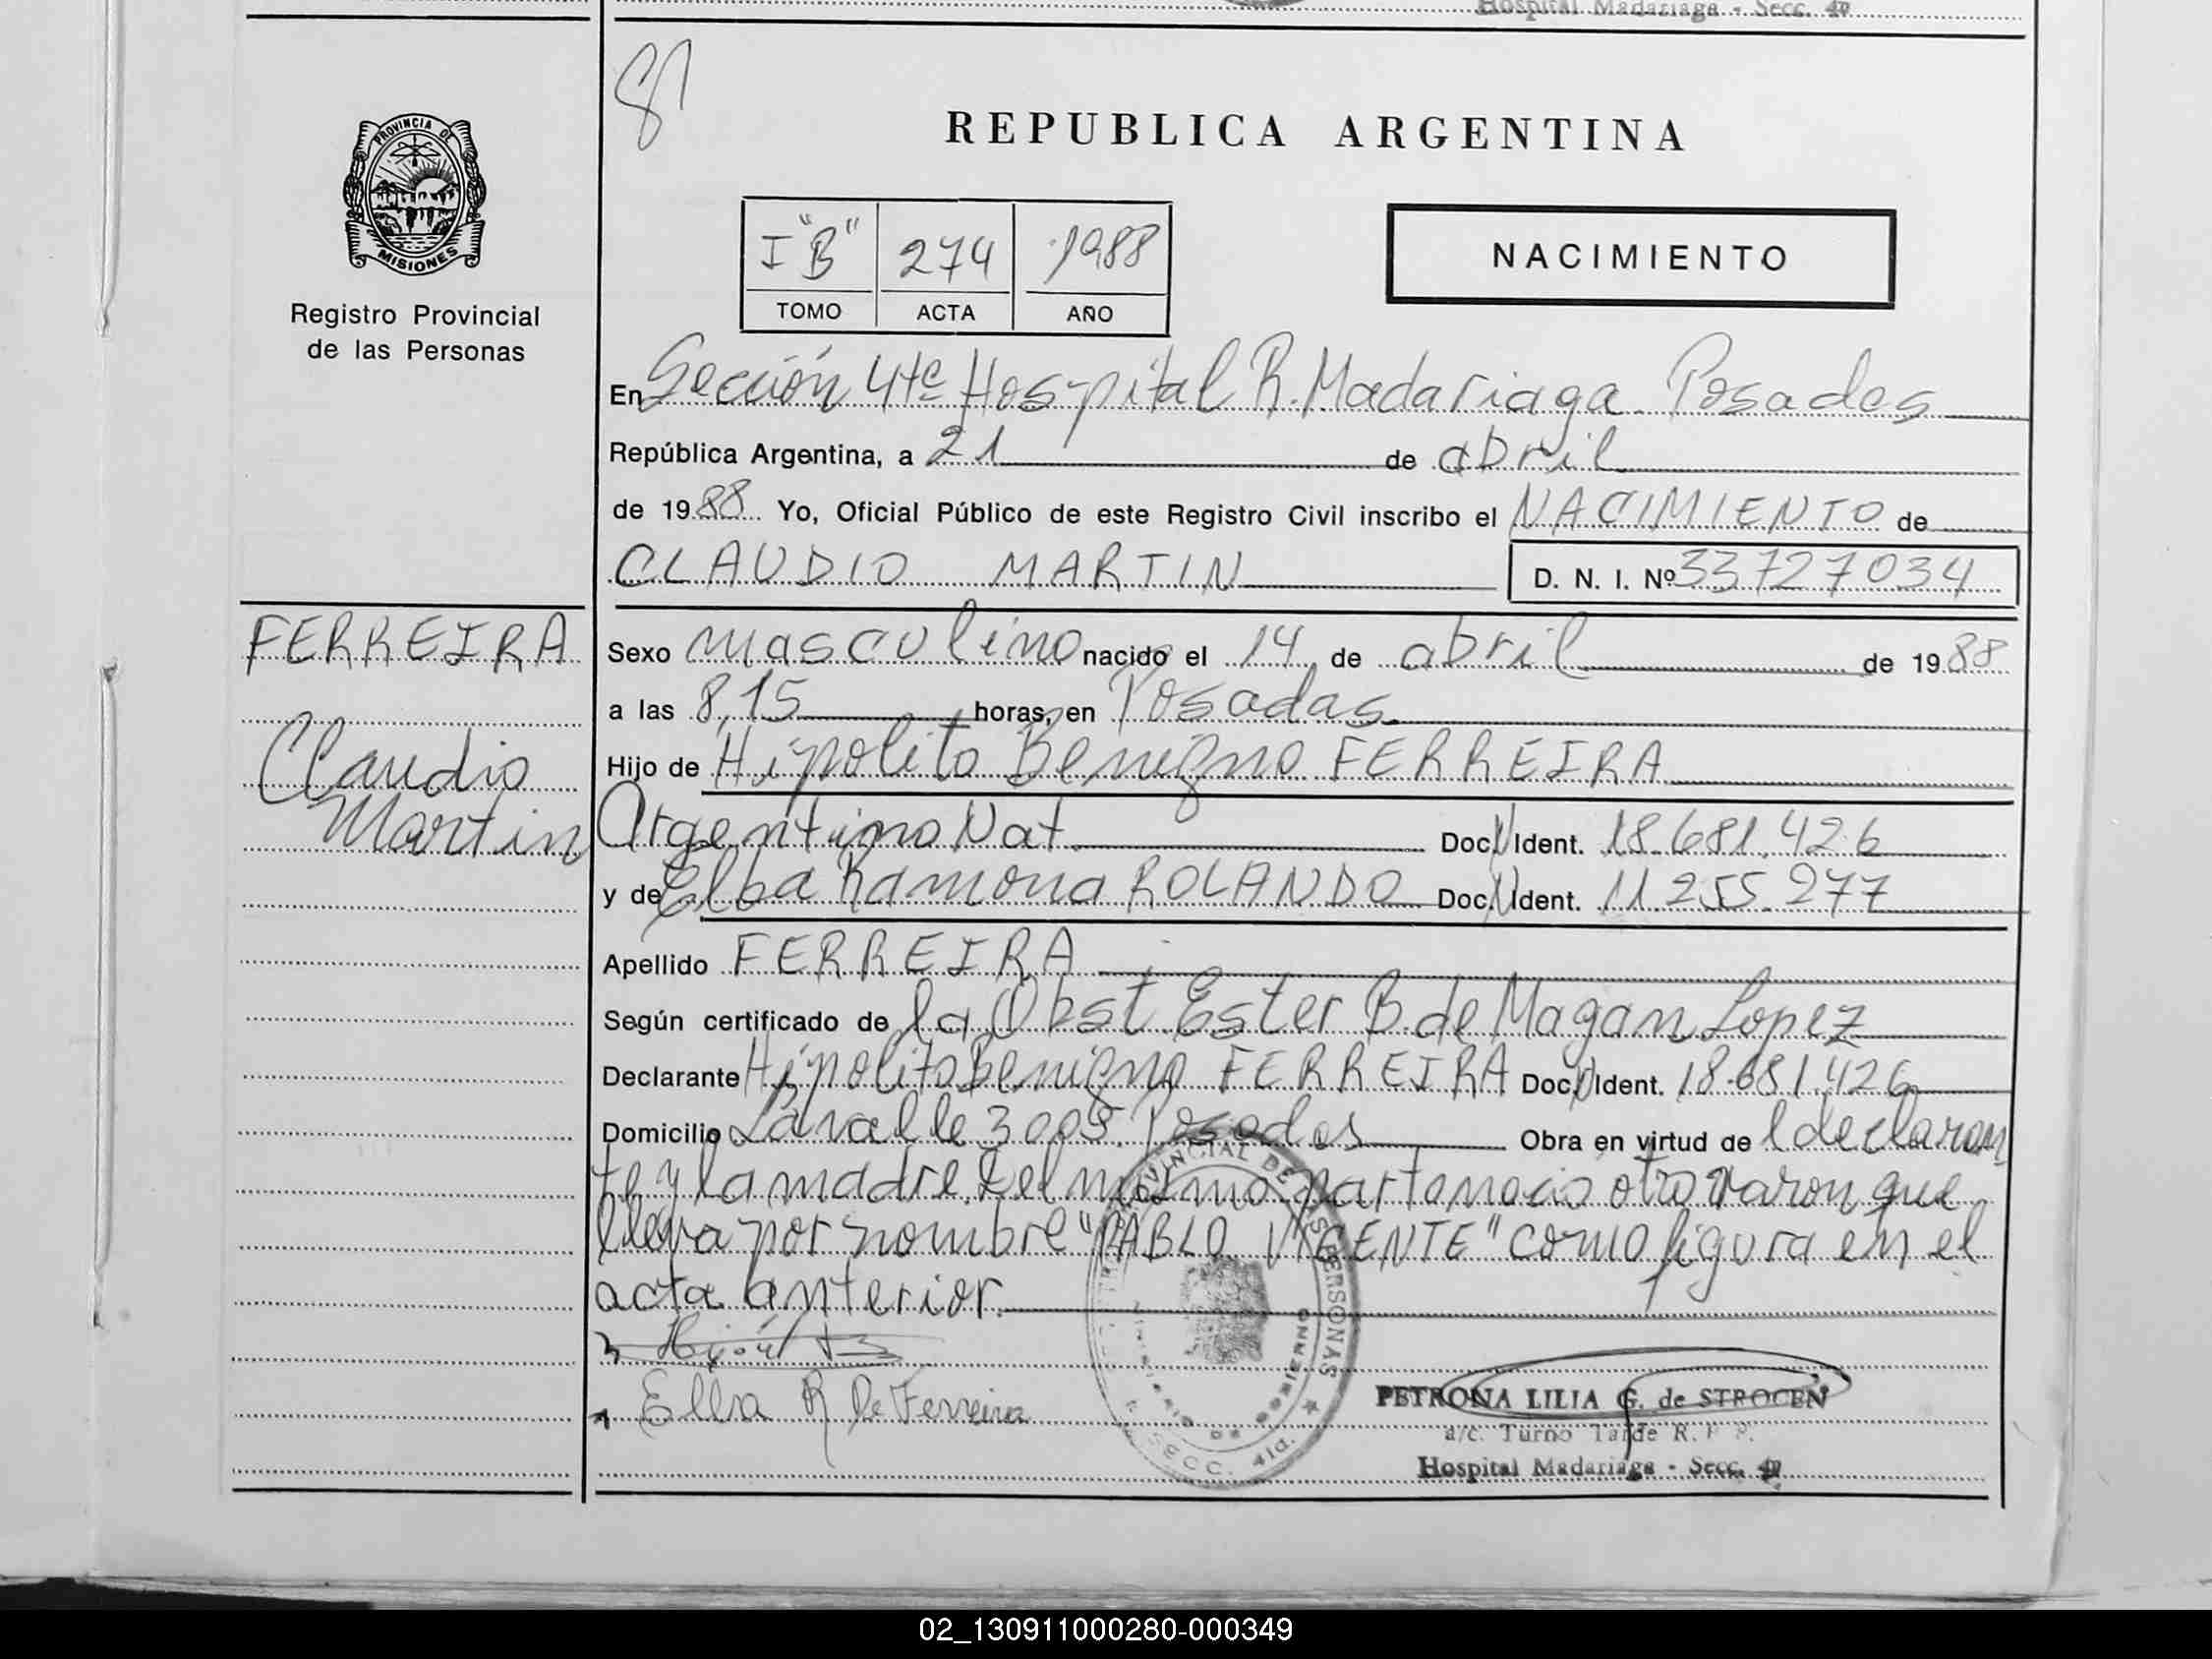 Hospital Madariaga - Secc. 4ª
8
PROVINCIA DE
MISIONES
Registro Provincial
de las Personas
REPUBLICA ARGENTINA
I "B" 274 1988
TOMO ACTA AÑO
NACIMIENTO
En Sección 4ta Hospital R. Madariaga. Posadas
República Argentina, a 21 de abril
de 1988 Yo, Oficial Público de este Registro Civil inscribo el NACIMIENTO de
CLAUDIO MARTIN D. N. I. Nº 33727034
FERREIRA
Claudio
Martin
Sexo masculino nacido el 14 de abril de 1988
a las 8,15 horas, en Posadas.
Hijo de Hipolito Benigno FERREIRA
Argentino Nat. Doc. N Ident. 18.681.426
y de Elba Ramona ROLANDO Doc. N Ident. 11.255.277
Apellido FERREIRA
Según certificado de la Obst Ester B. de Magan Lopez
Declarante Hipolito Benigno FERREIRA Doc. N Ident. 18.681.426
Domicilio Lavalle 3009 Posadas Obra en virtud de l declaran
te y la madre. Del mismo parto nacio otro varon que
lleva por nombre "PABLO VICENTE" como figura en el
acta anterior.
Elba R De Ferreira
PROVINCIAL DE LAS PERSONAS
MINISTERIO DE GOBIERNO
SECC. 4ta.
PETRONA LILIA G. de STROCEN
a/c. Turno Tarde R. P. P.
Hospital Madariaga - Secc. 4ª
02_130911000280-000349